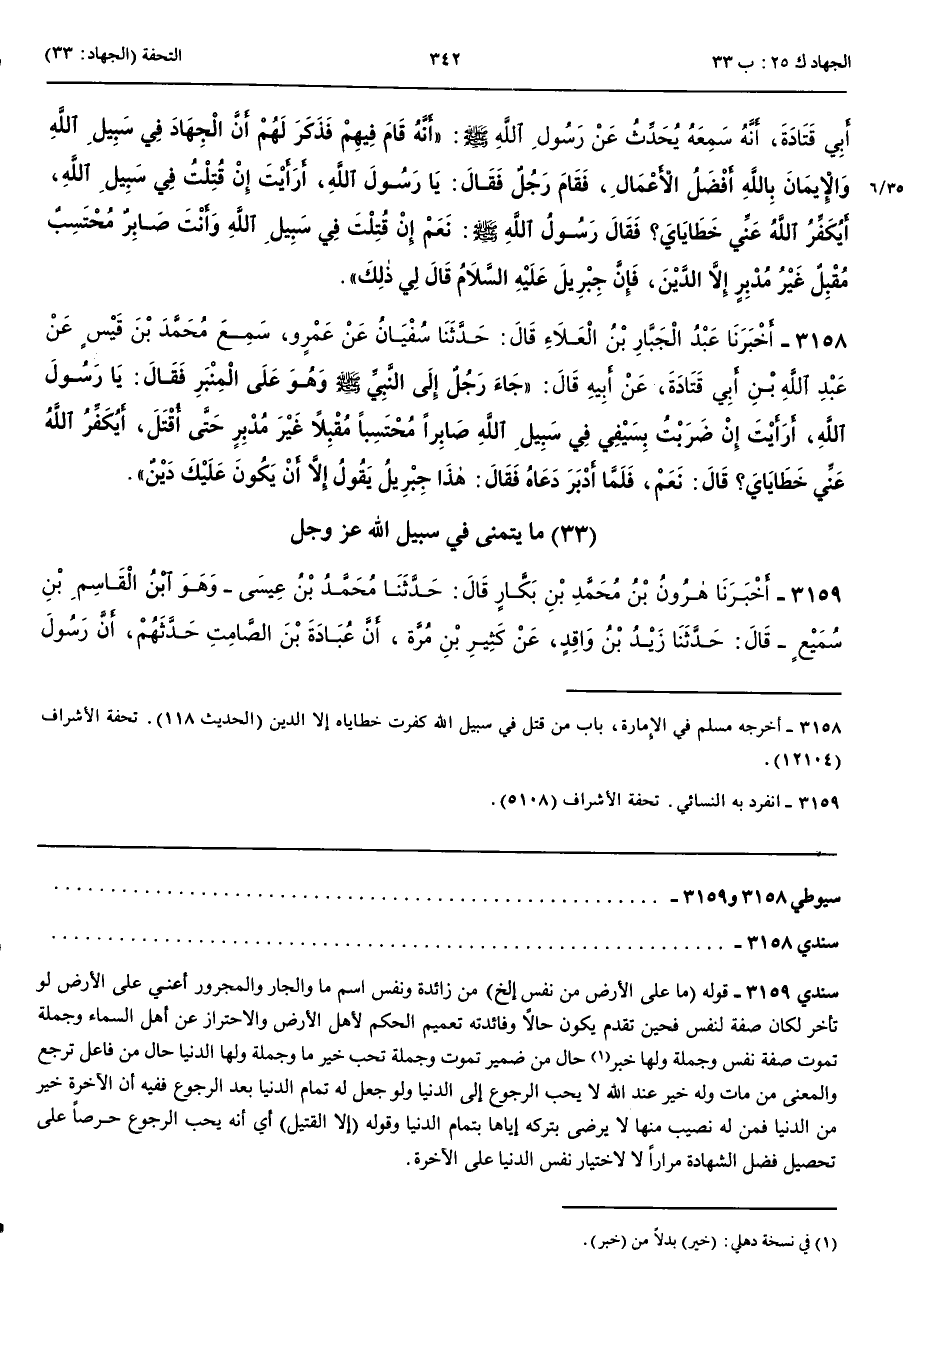 الجهاد ك ٢٥ : ب ٣٣
٣٤٢
التحفة (الجهاد: ٣٣)
أَبِي قَتَادَةَ، أَنَّهُ سَمِعَهُ يُحَدِّثُ عَنْ رَسُولِ اللَّهِ ﷺ: «أَنَّهُ قَامَ فِيهِمْ فَذَكَرَ لَهُمْ أَنَّ الْجِهَادَ فِي سَبِيلِ اللَّهِ
٦/٣٥ وَالْإِيمَانَ بِاللَّهِ أَفْضَلُ الْأَعْمَالِ، فَقَامَ رَجُلٌ فَقَالَ: يَا رَسُولَ اللَّهِ، أَرَأَيْتَ إِنْ قُتِلْتُ فِي سَبِيلِ اللَّهِ،
أَيُكَفِّرُ اللَّهُ عَنِّي خَطَايَايَ؟ فَقَالَ رَسُولُ اللَّهِ ﷺ: نَعَمْ إِنْ قُتِلْتَ فِي سَبِيلِ اللَّهِ وَأَنْتَ صَابِرٌ مُحْتَسِبٌ
مُقْبِلٌ غَيْرُ مُدْبِرٍ إِلَّا الدَّيْنَ، فَإِنَّ جِبْرِيلَ عَلَيْهِ السَّلَامُ قَالَ لِي ذٰلِكَ».
٣١٥٨ ـ أَخْبَرَنَا عَبْدُ الْجَبَّارِ بْنُ الْعَلَاءِ قَالَ: حَدَّثَنَا سُفْيَانُ عَنْ عَمْرٍو، سَمِعَ مُحَمَّدَ بْنَ قَيْسٍ عَنْ
عَبْدِ اللَّهِ بْنِ أَبِي قَتَادَةَ، عَنْ أَبِيهِ قَالَ: «جَاءَ رَجُلٌ إِلَى النَّبِيِّ ﷺ وَهُوَ عَلَى الْمِنْبَرِ فَقَالَ: يَا رَسُولَ
اللَّهِ، أَرَأَيْتَ إِنْ ضَرَبْتُ بِسَيْفِي فِي سَبِيلِ اللَّهِ صَابِراً مُحْتَسِباً مُقْبِلاً غَيْرَ مُدْبِرٍ حَتَّى أُقْتَلَ، أَيُكَفِّرُ اللَّهُ
عَنِّي خَطَايَايَ؟ قَالَ: نَعَمْ، فَلَمَّا أَدْبَرَ دَعَاهُ فَقَالَ: هٰذَا جِبْرِيلُ يَقُولُ إِلَّا أَنْ يَكُونَ عَلَيْكَ دَيْنٌ».
(٣٣) ما يتمنى في سبيل الله عز وجل
٣١٥٩ ـ أَخْبَرَنَا هٰرُونُ بْنُ مُحَمَّدِ بْنِ بَكَّارٍ قَالَ: حَدَّثَنَا مُحَمَّدُ بْنُ عِيسَى ـ وَهُوَ ابْنُ الْقَاسِمِ بْنِ
سُمَيْعٍ ـ قَالَ: حَدَّثَنَا زَيْدُ بْنُ وَاقِدٍ، عَنْ كَثِيرِ بْنِ مُرَّةَ، أَنَّ عُبَادَةَ بْنَ الصَّامِتِ حَدَّثَهُمْ، أَنَّ رَسُولَ
٣١٥٨ ـ أخرجه مسلم في الإمارة، باب من قتل في سبيل الله كفرت خطاياه إلا الدين (الحديث ١١٨). تحفة الأشراف
(١٢١٠٤).
٣١٥٩ ـ انفرد به النسائي. تحفة الأشراف (٥١٠٨).
سيوطي ٣١٥٨ و٣١٥٩ ـ . . . . . . . . . . . . . . . . . . . . . . . . . . . . . .
سندي ٣١٥٨ ـ . . . . . . . . . . . . . . . . . . . . . . . . . . . . . .
سندي ٣١٥٩ ـ قوله (ما على الأرض من نفس إلخ) من زائدة ونفس اسم ما والجار والمجرور أعني على الأرض لو
تأخر لكان صفة لنفس فحين تقدم يكون حالاً وفائدته تعميم الحكم لأهل الأرض والاحتراز عن أهل السماء وجملة
تموت صفة نفس وجملة ولها خبر(١) حال من ضمير تموت وجملة تحب خير ما وجملة ولها الدنيا حال من فاعل ترجع
والمعنى من مات وله خير عند الله لا يحب الرجوع إلى الدنيا ولو جعل له تمام الدنيا بعد الرجوع ففيه أن الآخرة خير
من الدنيا فمن له نصيب منها لا يرضى بتركه إياها بتمام الدنيا وقوله (إلا القتيل) أي أنه يحب الرجوع حرصاً على
تحصيل فضل الشهادة مراراً لا لاختيار نفس الدنيا على الآخرة.
(١) في نسخة دهلي: (خير) بدلاً من (خبر).